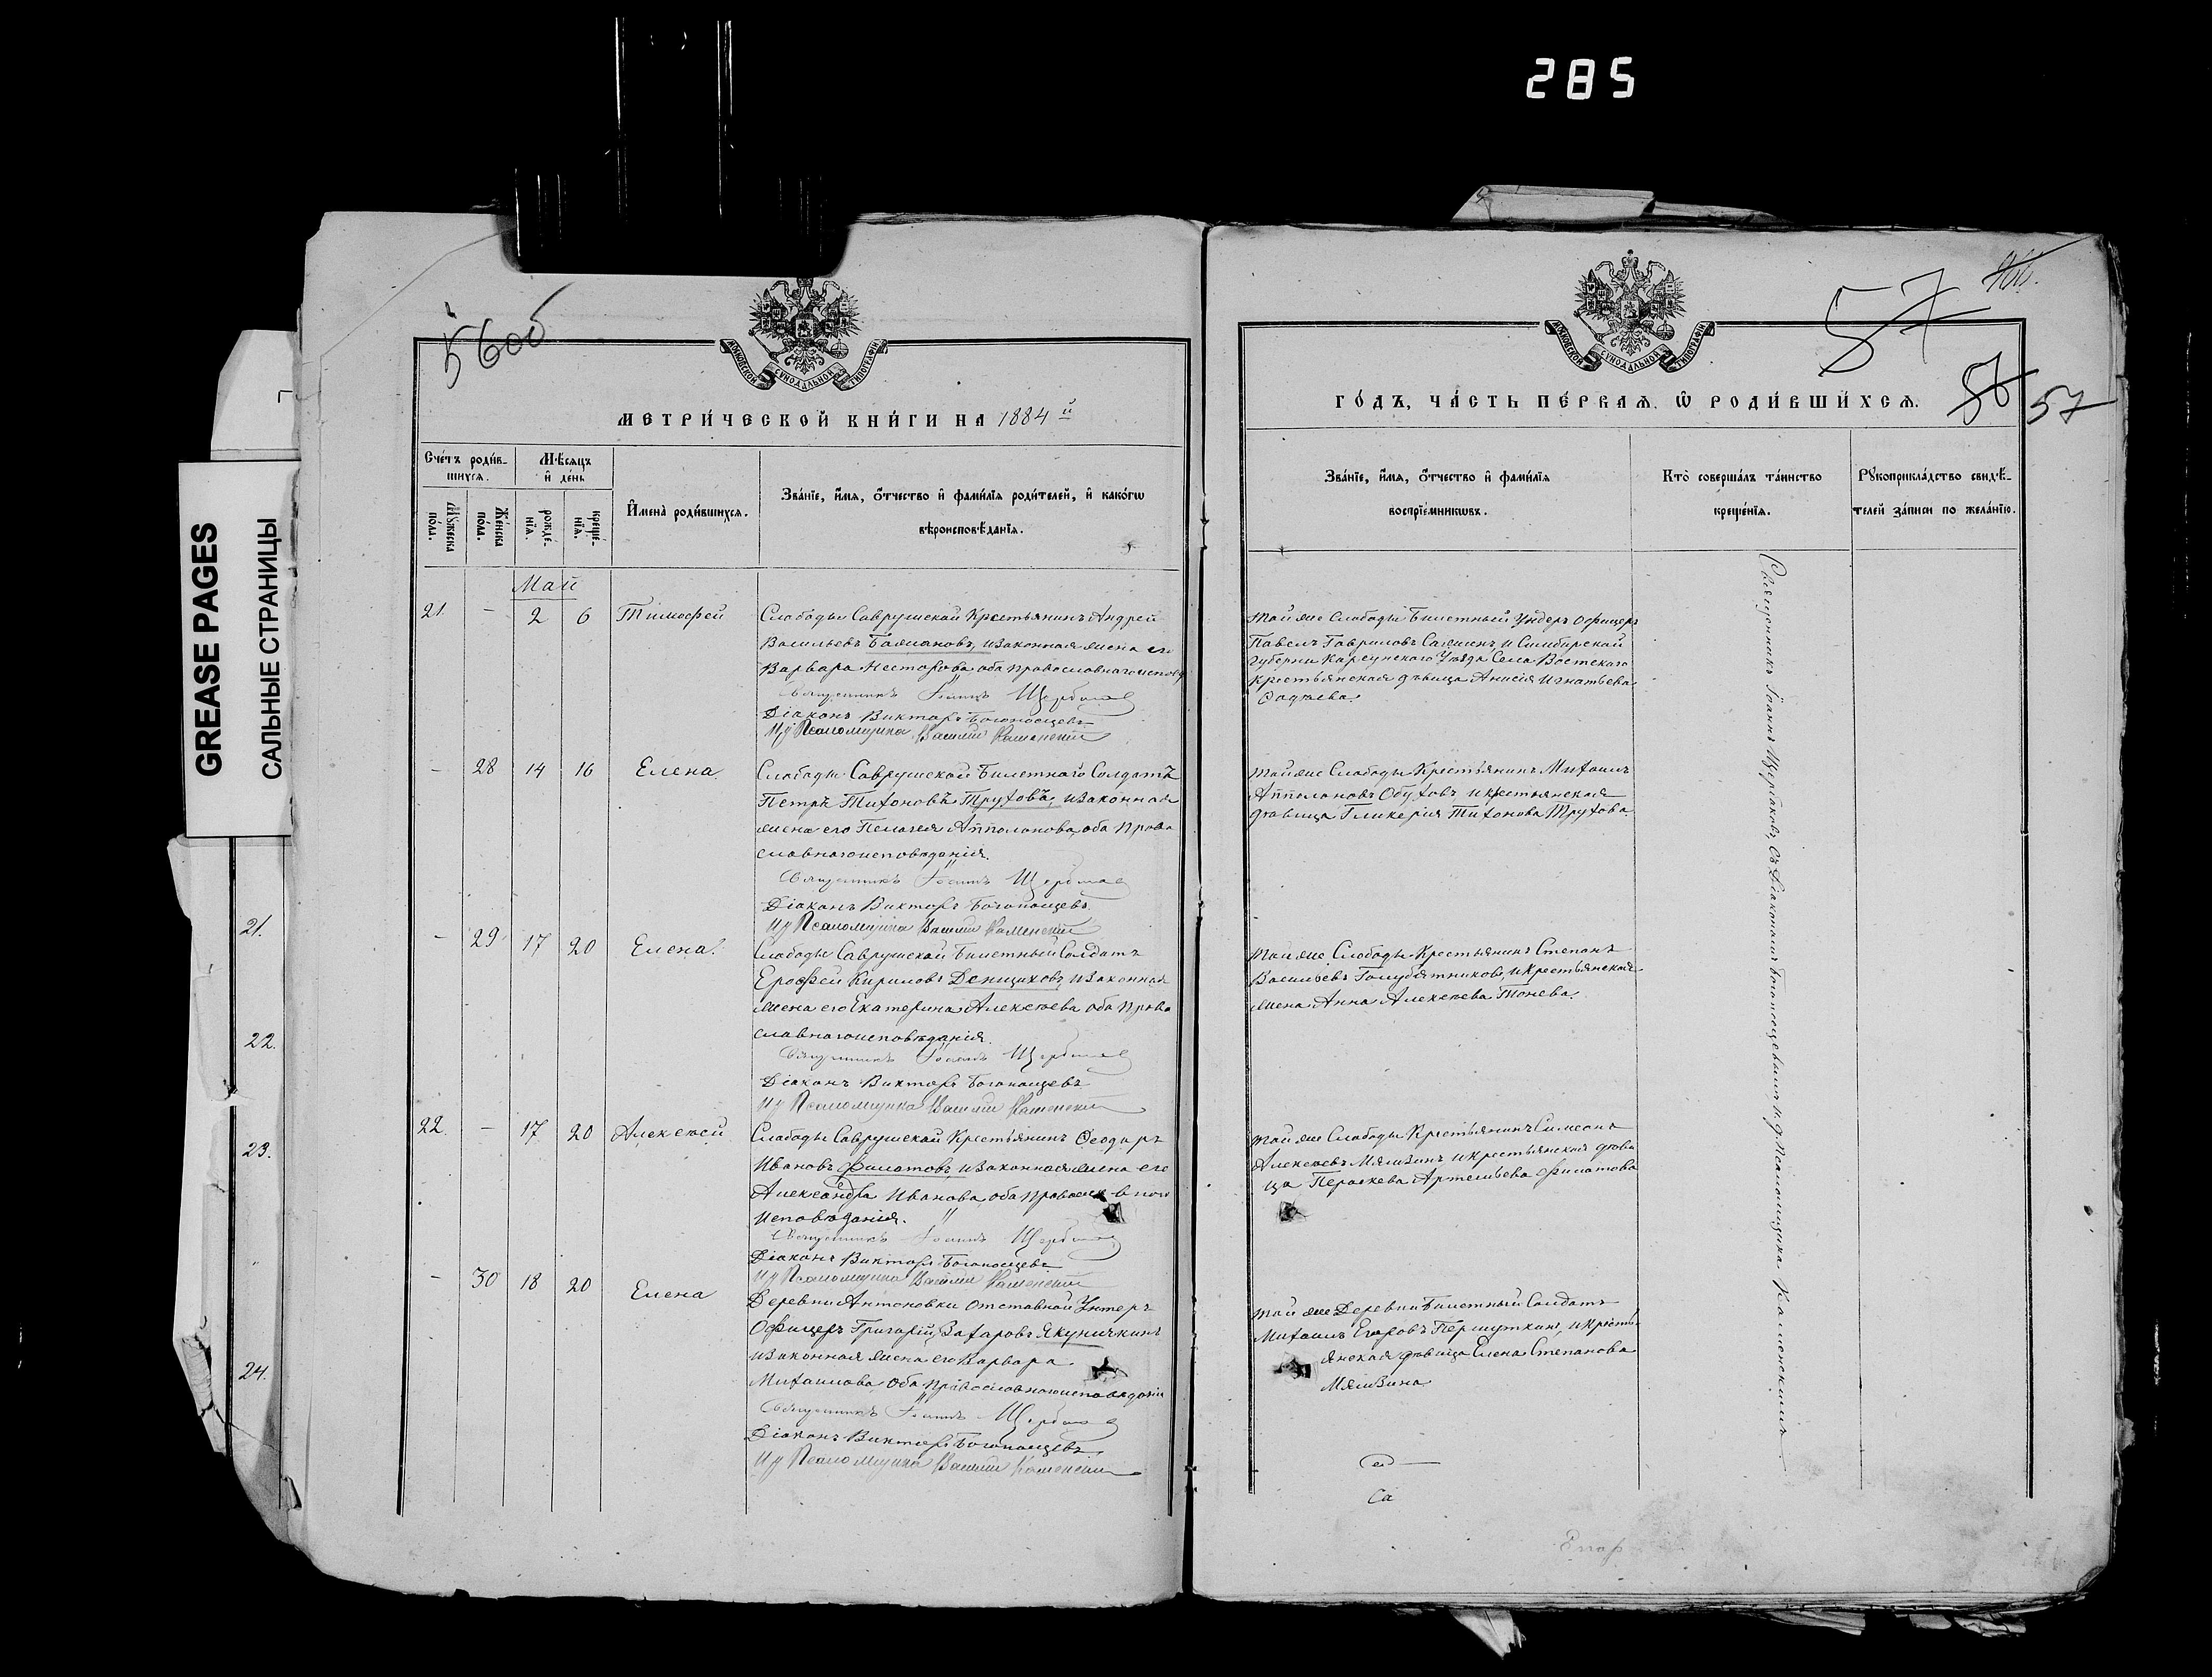 285
GREASE PAGES
САЛЬНЫЕ СТРАНИЦЫ
21.
22.
23.
24.
56об
МОСКОВСКОЙ СѴНОДАЛЬНОЙ ТИПОГРАФІИ
МЕТРИ́ЧЕСКОЙ КНИ́ГИ НА 1884й
Сче́тъ роди́в-
шихся.
Мѣ́сяцъ
и҆ де́нь
Мꙋ́жеска по́ла.
Же́нска по́ла.
рожде́-нїѧ.
креще́-нїѧ.
И҆мена̀ роди́вшихсѧ.
Зва́нїе, и҆́мѧ, ѻ҆́тчество и҆ фами́лїѧ роди́телей, и҆ како́гѡ
вѣроисповѣ́данїѧ.
Май
21. - 2 6 Тимофей
Слободы Саврушской Крестьянинъ Андрей
Васильевъ Балмановъ, и законная жена его
Варвара Несторова, оба православнаго испов
Священникъ Іоаннъ Щербаков
Діаконъ Викторъ Богоносцевъ
И д Псаломщика Василій Каменскій
- 28 14 16 Елена.
Слободы Саврушской Билетнаго Солдатъ
Петръ Тихоновъ Труховъ, и законная
жена его Пелагея Апполонова, оба право
славнаго исповѣданія.
Священникъ Іоаннъ Щербаков
Діаконъ Викторъ Богоносцевъ.
И д Псаломщика Василій Каменскій
- 29 17 20 Елена.
Слободы Саврушской Билетный Солдатъ
Ерофей Кириловъ Денщиковъ, и законная
жена его Екатерина Алексѣева оба Право
славнаго исповѣданія.
Священникъ Іоаннъ Щербаков
Діаконъ Викторъ Богоносцевъ
И д Псаломщика Василій Каменскій
22. - 17 20 Алексѣй
Слободы Саврушской Крестьянинъ Ѳеодоръ
Ивановъ Филатовъ, и законная жена его
Александра Иванова, оба православного
исповѣданія.
Священникъ Іоаннъ Щербаков
Діаконъ Викторъ Богоносцевъ
И д Псаломщика Василій Каменскій
- 30 18 20 Елена
Деревни Антоновки отставной Унтеръ
Офицеръ Григорій Захаровъ Якуничкинъ
и законная жена его Варвара
Михаилова, оба православного исповѣданія
Священникъ Іоаннъ Щербаков
Діаконъ Викторъ Богоносцевъ
И д Псаломщика Василій Каменскій
57
56 57
МОСКОВСКОЙ СѴНОДАЛЬНОЙ ТИПОГРАФІИ
ГО́ДЪ, ЧА́СТЬ ПЕ́РВАЯ, Ѡ҆ РОДИ́ВШИХСЯ.
Зва́нїе, и҆́мѧ, ѻ҆́тчество и҆ фами́лїѧ
воспрїе́мникѡвъ.
Кто̀ соверша́лъ та́инство
креще́нїѧ.
Рꙋкоприкла́дство свидѣ́-
телей за́писи по жела́нїю.
Той же Слободы Билетный Ундеръ Офицеръ
Павелъ Гавриловъ и Симбирской
Губерни Карсунского Уѣзда Села
крестьянская дѣвица Анисія Игнатьева
Той же Слободы Крестьянинъ Михаилъ
Апполоновъ Обуховъ и крестьянская
дѣвица Гликерія Тихонова Трухова.
Той же Слободы Крестьянинъ Степанъ
Васильевъ Голубятниковъ, и крестьянская
жена Анна Алексѣева Тонева.
Той же Слободы Крестьянинъ Симеонъ
Алексѣевъ Мялзинъ и крестьянская дѣви
ца Параскева Артемьева Филатова
Той же Деревни Билетный Солдатъ
Михаилъ Егоровъ Першуткинъ, и кресть
янская дѣвица Елена Степанова
Мялзина.
Священникъ Іоаннъ Щербаковъ, съ Діакономъ Богоносцевымъ и д Псаломщика Каменскимъ
Са
Епар